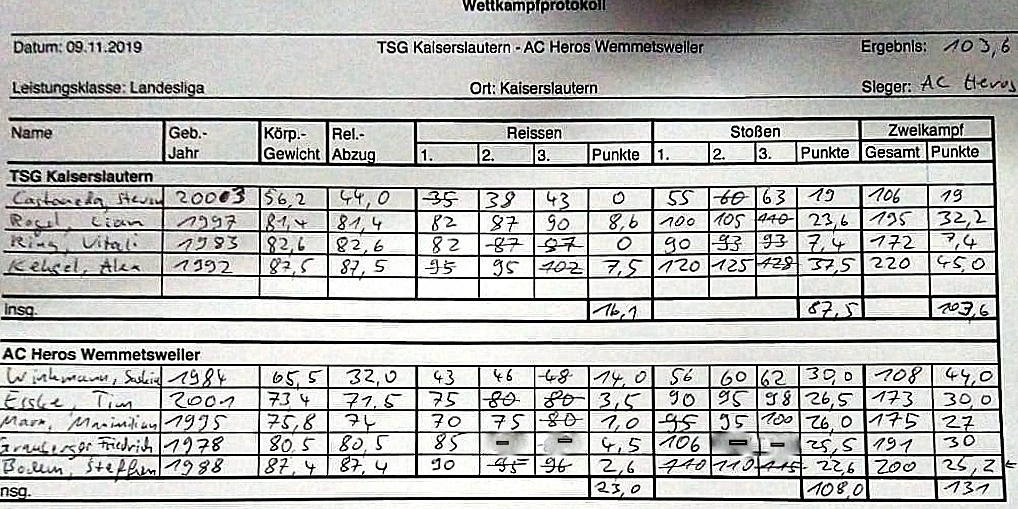 Wettkampfprotokoll
Datum: 09.11.2019 TSG Kaiserslautern - AC Heros Wemmetsweiler Ergebnis: 103,6
Leistungsklasse: Landesliga Ort: Kaiserslautern Sieger: AC Heros
Name Geb.- Körp.- Rel.- Reissen Stoßen Zweikampf
Jahr Gewicht Abzug 1. 2. 3. Punkte 1. 2. 3. Punkte Gesamt Punkte
TSG Kaiserslautern
56,2 44,0 35 38 43 0 55 60 63 19 106 19
Rogel, Lian 1997 81,4 81,4 82 87 90 8,6 100 105 110 23,6 195 32,2
Ring, Vitali 1983 82,6 82,6 82 87 87 0 90 93 93 7,4 172 7,4
Alex 1992 87,5 87,5 95 95 102 7,5 120 125 128 37,5 220 45,0
Insg. 16,1 87,5 103,6
AC Heros Wemmetsweiler
Winkmann, Saskia 1984 65,5 32,0 43 46 48 14,0 56 60 62 30,0 108 44,0
Tim 2001 73 4 71.5 75 80 80 3,5 90 95 98 26,5 173 30,0
Maximilian 1995 75,8 74 70 75 80 1,0 95 95 100 26,0 175 27
Friedrich 1978 80,5 80,5 85 - - 4,5 106 - - 25,5 191 30
Steffen 1988 87,4 87,4 90 95 96 2,6 110 110 115 22,6 200 25,2
nsg. 23,0 108,0 131